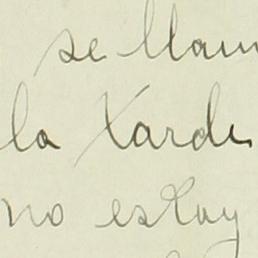 se llam
la Xardi
no estoy